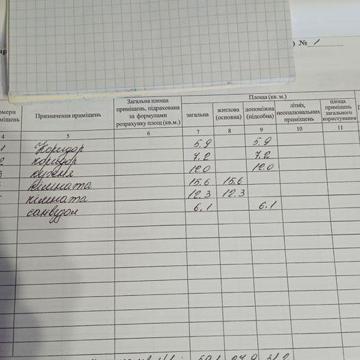 ) № 1
Площа (кв. м.)
Призначення приміщень
Загальна площа приміщень, підрахована за формулами розрахунку площ (кв.м.)
загальна
житлова (основна)
допоміжна (підсобна)
літніх, неопалювальних приміщень
площа приміщень загального користування
4 5 6 7 8 9 10 11
1 Коридор 5.9 5.9
2 коридор 7.2 7.2
3 кухня 12.0 12.0
кімната 15.6 15.6
кімната 12.3 12.3
санвузол 6.1 6.1